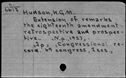 Hudson, N.G.M.
Extension of remarks
the eighteenth amendment
retrospective and prospec-
tive. N.p., 1931.
2p. (Congressional re-
cord, 71 congress, 3 ses.)